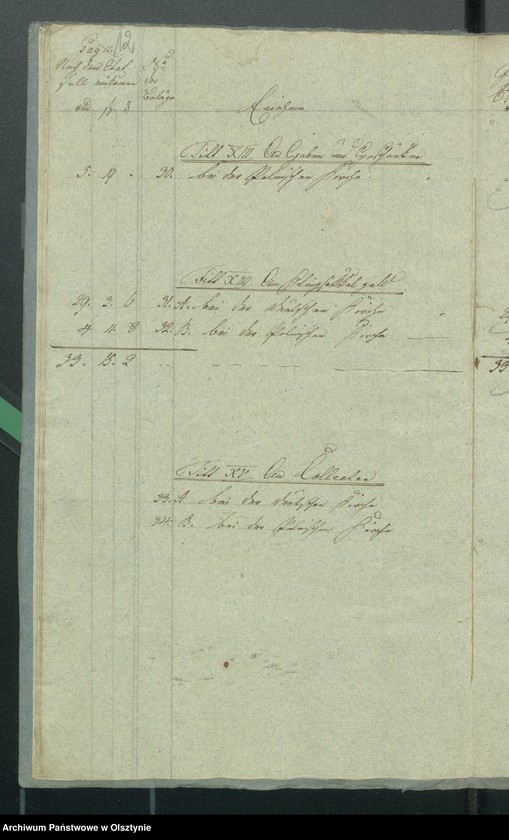 Pag: 12
Nach dem Etat No
soll einkommen der
rtl. gr. d. Beläge Einnahme
Titl XIII An Gaben und Geschenken
5. 19. - 30. bei der Polnischen Kirche
Titl XIV An Klingsäckel geld
29. 3. 6 31. A. bei der deutschen Kirche
4 4. 8 32. B. bei der Polnischen Kirche
33. 15. 2
33
Titl XV An Collecten
33. A bei der deutschen Kirche
34. B. bei der Polnischen Kirche
Archiwum Państwowe w Olsztynie